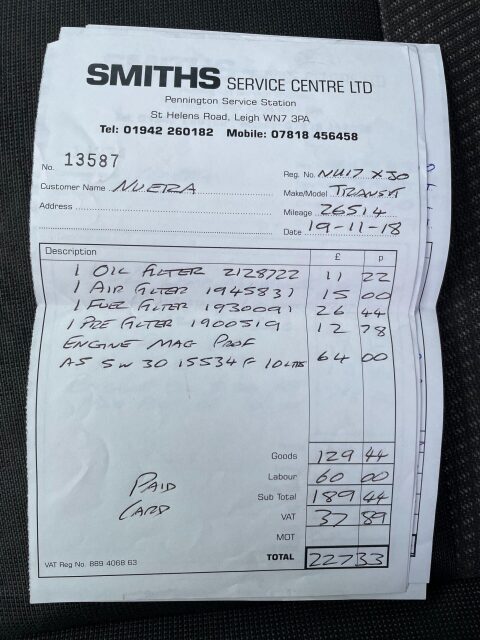 SMITHS SERVICE CENTRE LTD
Pennington Service Station
St Helens Road, Leigh WN7 3PA
Tel: 01942 260182 Mobile: 07818 456458
No. 13587
Reg. No. NU17 XJO
Customer Name NUERA
Make/Model TRANSIT
Address
Mileage 26514
Date 19-11-18
Description £ p
1 OIL FILTER 2128722 11 22
1 AIR FILTER 1945831 15 00
1 FUEL FILTER 1930091 26 44
1 PRE FILTER 1900519 12 78
ENGINE MAG PROF
A5 5W30 15534F 10 LTRS 64 00
Goods 129 44
Labour 60 00
PAID
Sub Total 189 44
CARD
VAT 37 89
MOT
TOTAL 227 33
VAT Reg No. 889 4068 63